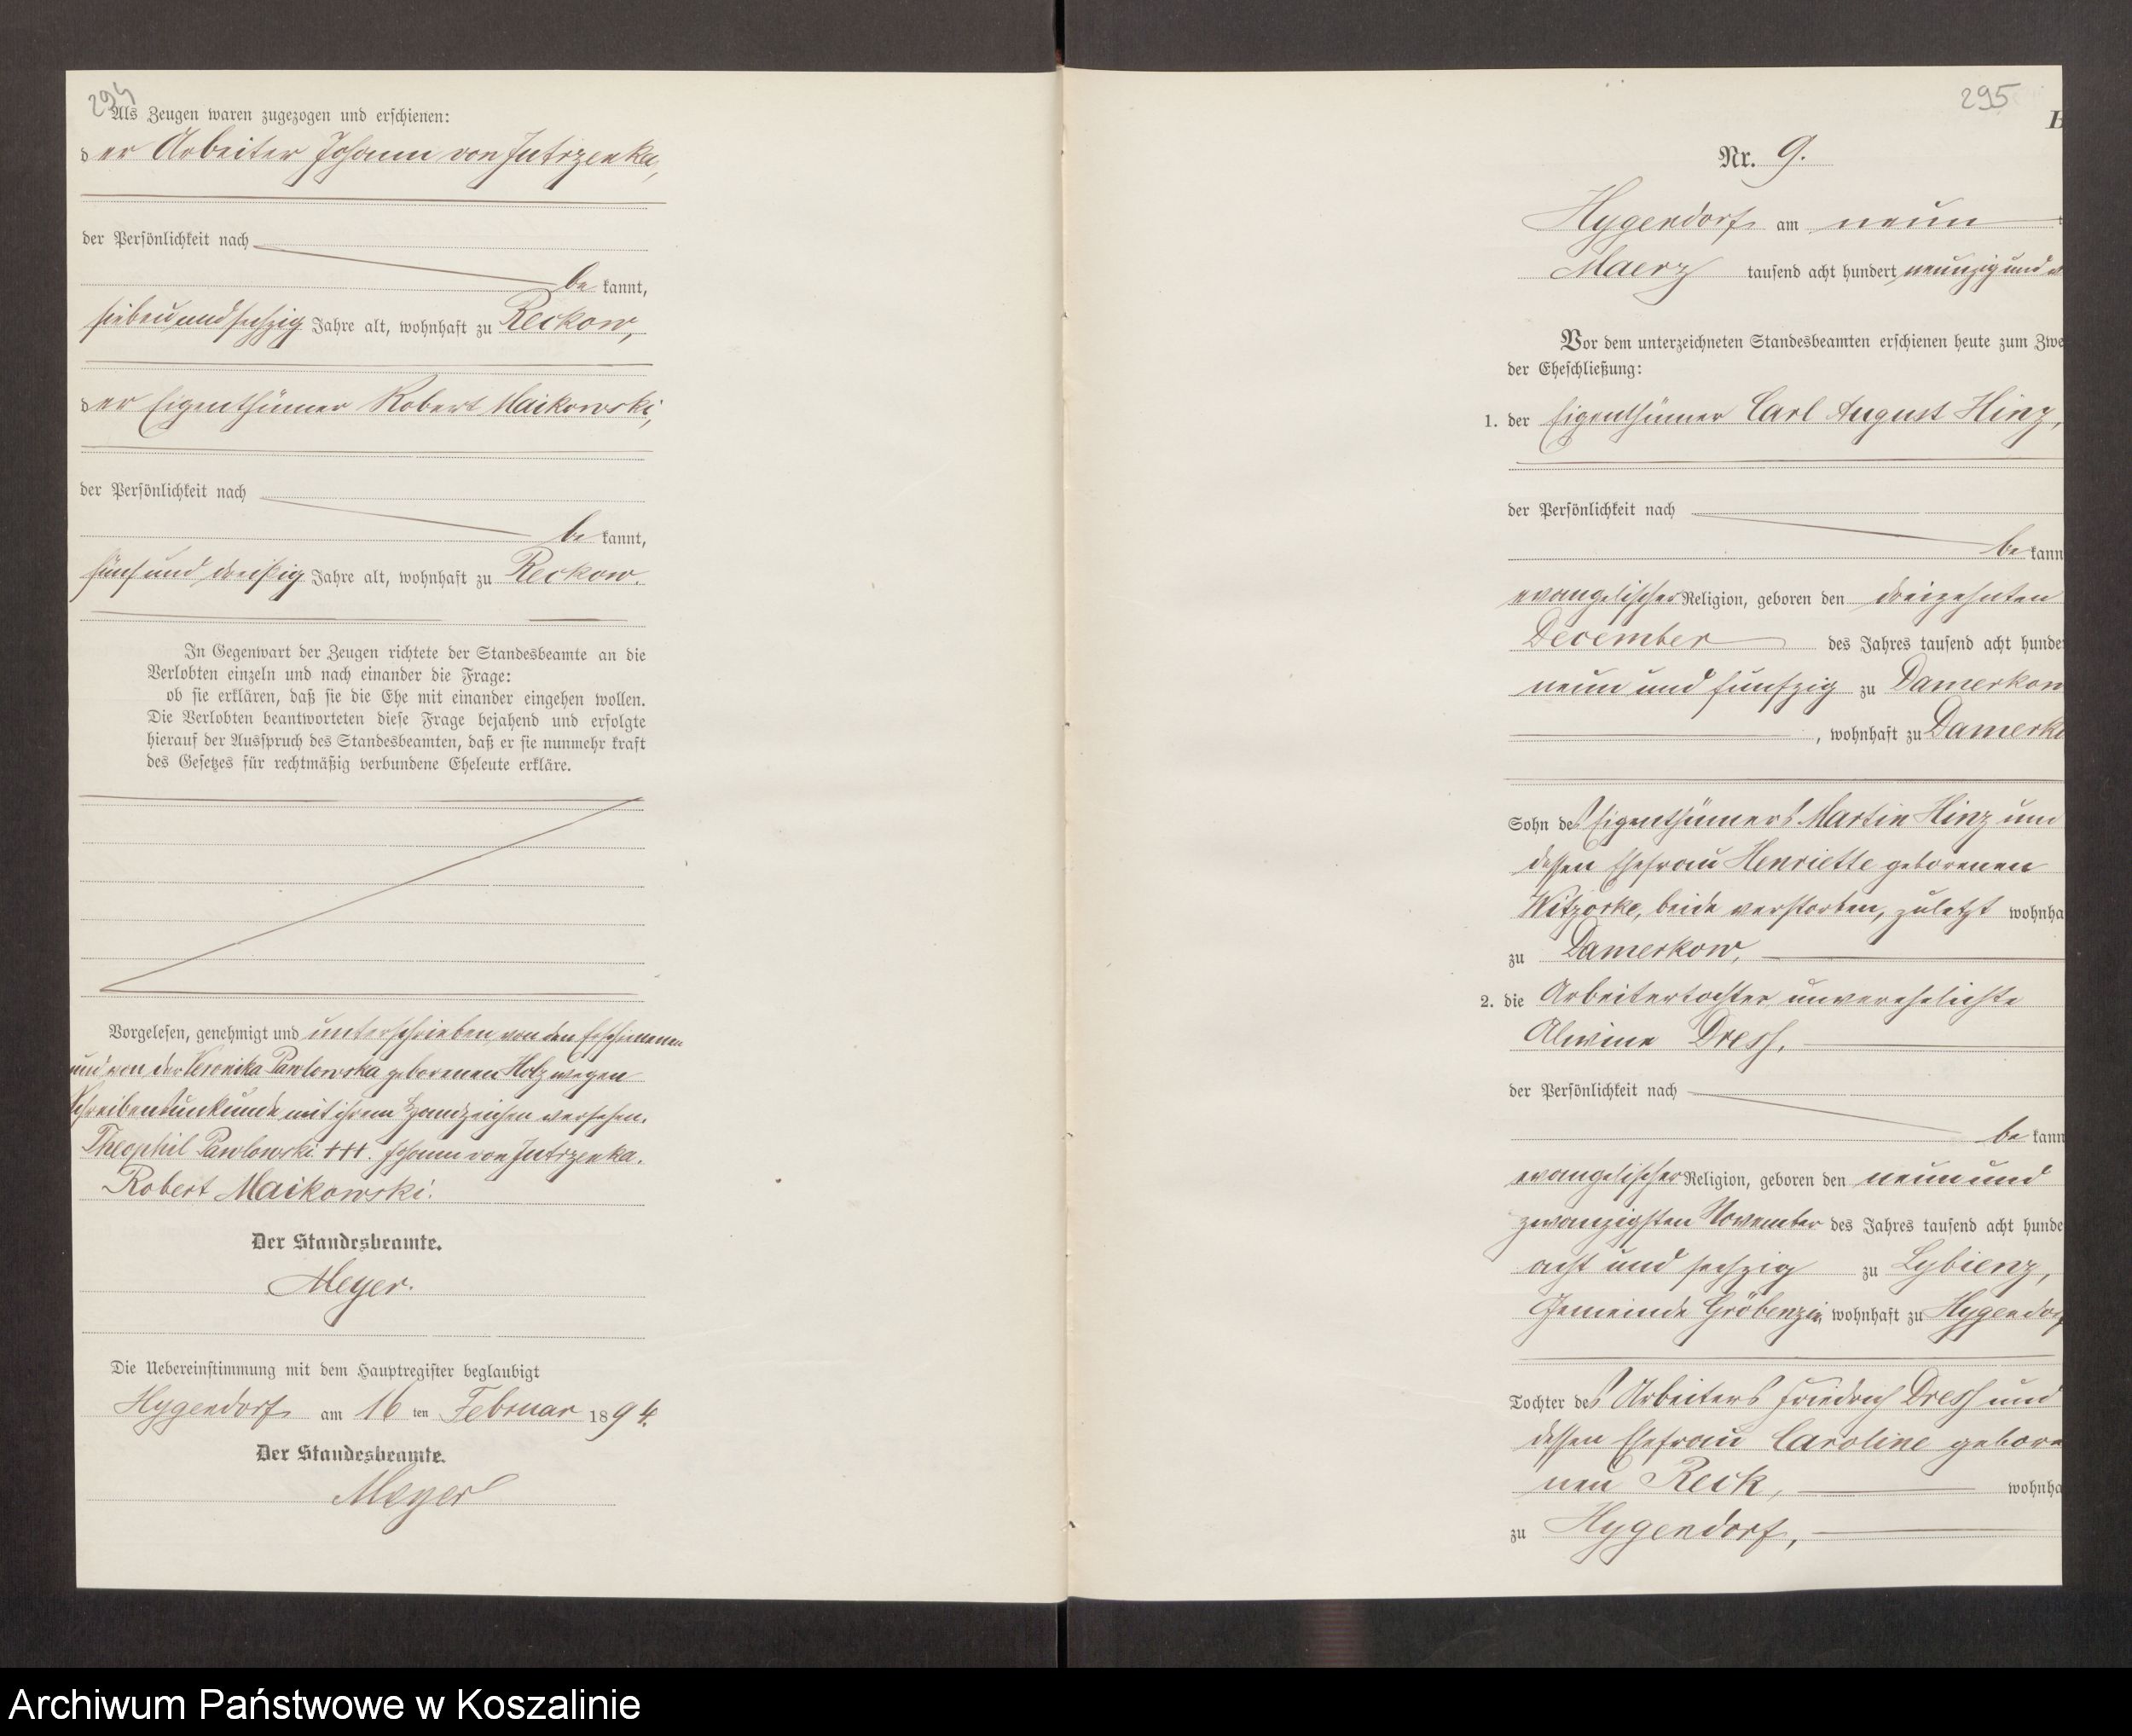 294
Als Zeugen waren zugezogen und erschienen:
der Arbeiter Johann von Jutrzenka,
der Persönlichkeit nach
be kannt,
sieben und sechzig Jahre alt, wohnhaft zu Reckow,
der Eigenthümer Robert Maikowski,
der Persönlichkeit nach
be kannt,
fünf und dreißig Jahre alt, wohnhaft zu Reckow.
In Gegenwart der Zeugen richtete der Standesbeamte an die
Verlobten einzeln und nach einander die Frage:
ob sie erklären, daß sie die Ehe mit einander eingehen wollen.
Die Verlobten beantworteten diese Frage bejahend und erfolgte
hierauf der Ausspruch des Standesbeamten, daß er sie nunmehr kraft
des Gesetzes für rechtmäßig verbundene Eheleute erkläre.
Vorgelesen, genehmigt und unterschrieben von den Erschienenen
und von der Veronika Pawlowska geborenen Holz wegen
Schreibensunkunde mit ihrem Handzeichen versehen.
Theophil Pawlowski. +++. Johann von Jutrzenka.
Robert Maikowski.
Der Standesbeamte.
Meyer.
Die Uebereinstimmung mit dem Hauptregister beglaubigt
Hygendorf am 16 ten Februar 1894.
Der Standesbeamte.
Meyer
295
Nr. 9.
Hygendorf am neun
Maerz tausend acht hundert neunzig und
Vor dem unterzeichneten Standesbeamten erschienen heute zum Zwe
der Eheschließung:
1. der Eigenthümer Carl August Hinz,
der Persönlichkeit nach
be kann
evangelischer Religion, geboren den dreizehnten
December des Jahres tausend acht hunde
neun und fünfzig zu Damerkow
, wohnhaft zu Damerko
Sohn des Eigenthümers Martin Hinz und
dessen Ehefrau Henriette geborenen
Witzorke, beide verstorben, zuletzt wohnha
zu Damerkow,
2. die Arbeitertochter unverehelichte
Alwine Dresh,
der Persönlichkeit nach
be kann
evangelischer Religion, geboren den neun und
zwanzigsten November des Jahres tausend acht hunde
acht und sechzig zu Lybienz,
Gemeinde Gröbenzin, wohnhaft zu Hygendorf
Tochter des Arbeiters Friedrich Dresh und
dessen Ehefrau Caroline gebore
nen Reck, wohnha
zu Hygendorf,
Archiwum Państwowe w Koszalinie